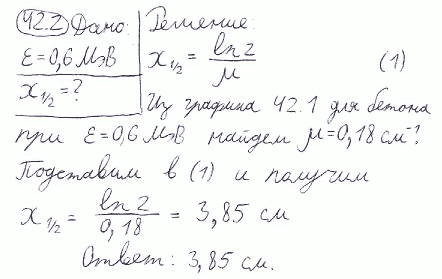 42.2 Дано: Решение:
ε = 0,6 МэВ x₁/₂ = ln 2 / μ (1)
x₁/₂ = ?
Из графика 42.1 для бетона
при ε = 0,6 МэВ найдем μ = 0,18 см⁻¹.
Подставим в (1) и получим
x₁/₂ = ln 2 / 0,18 = 3,85 см
Ответ: 3,85 см.